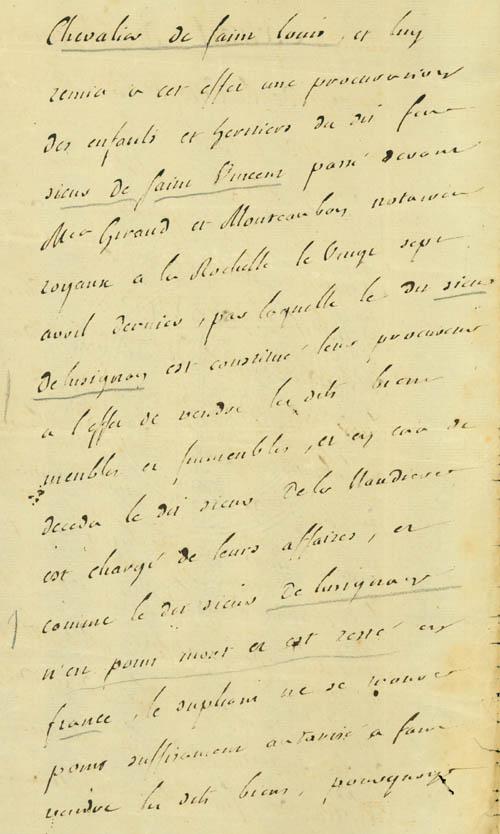 Chevalier de saint Louis, et luy
remis a cet effet une procuration
des enfants et heritiers du dit feu
sieur de saint Vincent passé devant
Mes Giraud et notaires
royaux a la Rochelle le vingt sept
avril dernier, par laquelle le dit sieur
de lusignan est constitué leur procureur
a l'effet de vendre les dits biens
meubles et immeubles, et en cas de
deceda le dit sieur de la
est chargé de leurs affaires, et
comme le dit sieur de lusignan
n'en point mort et est resté en
france, le supliant ne se trouve
point suffisament autorisé a faire
vendre les dits biens, pourquoy